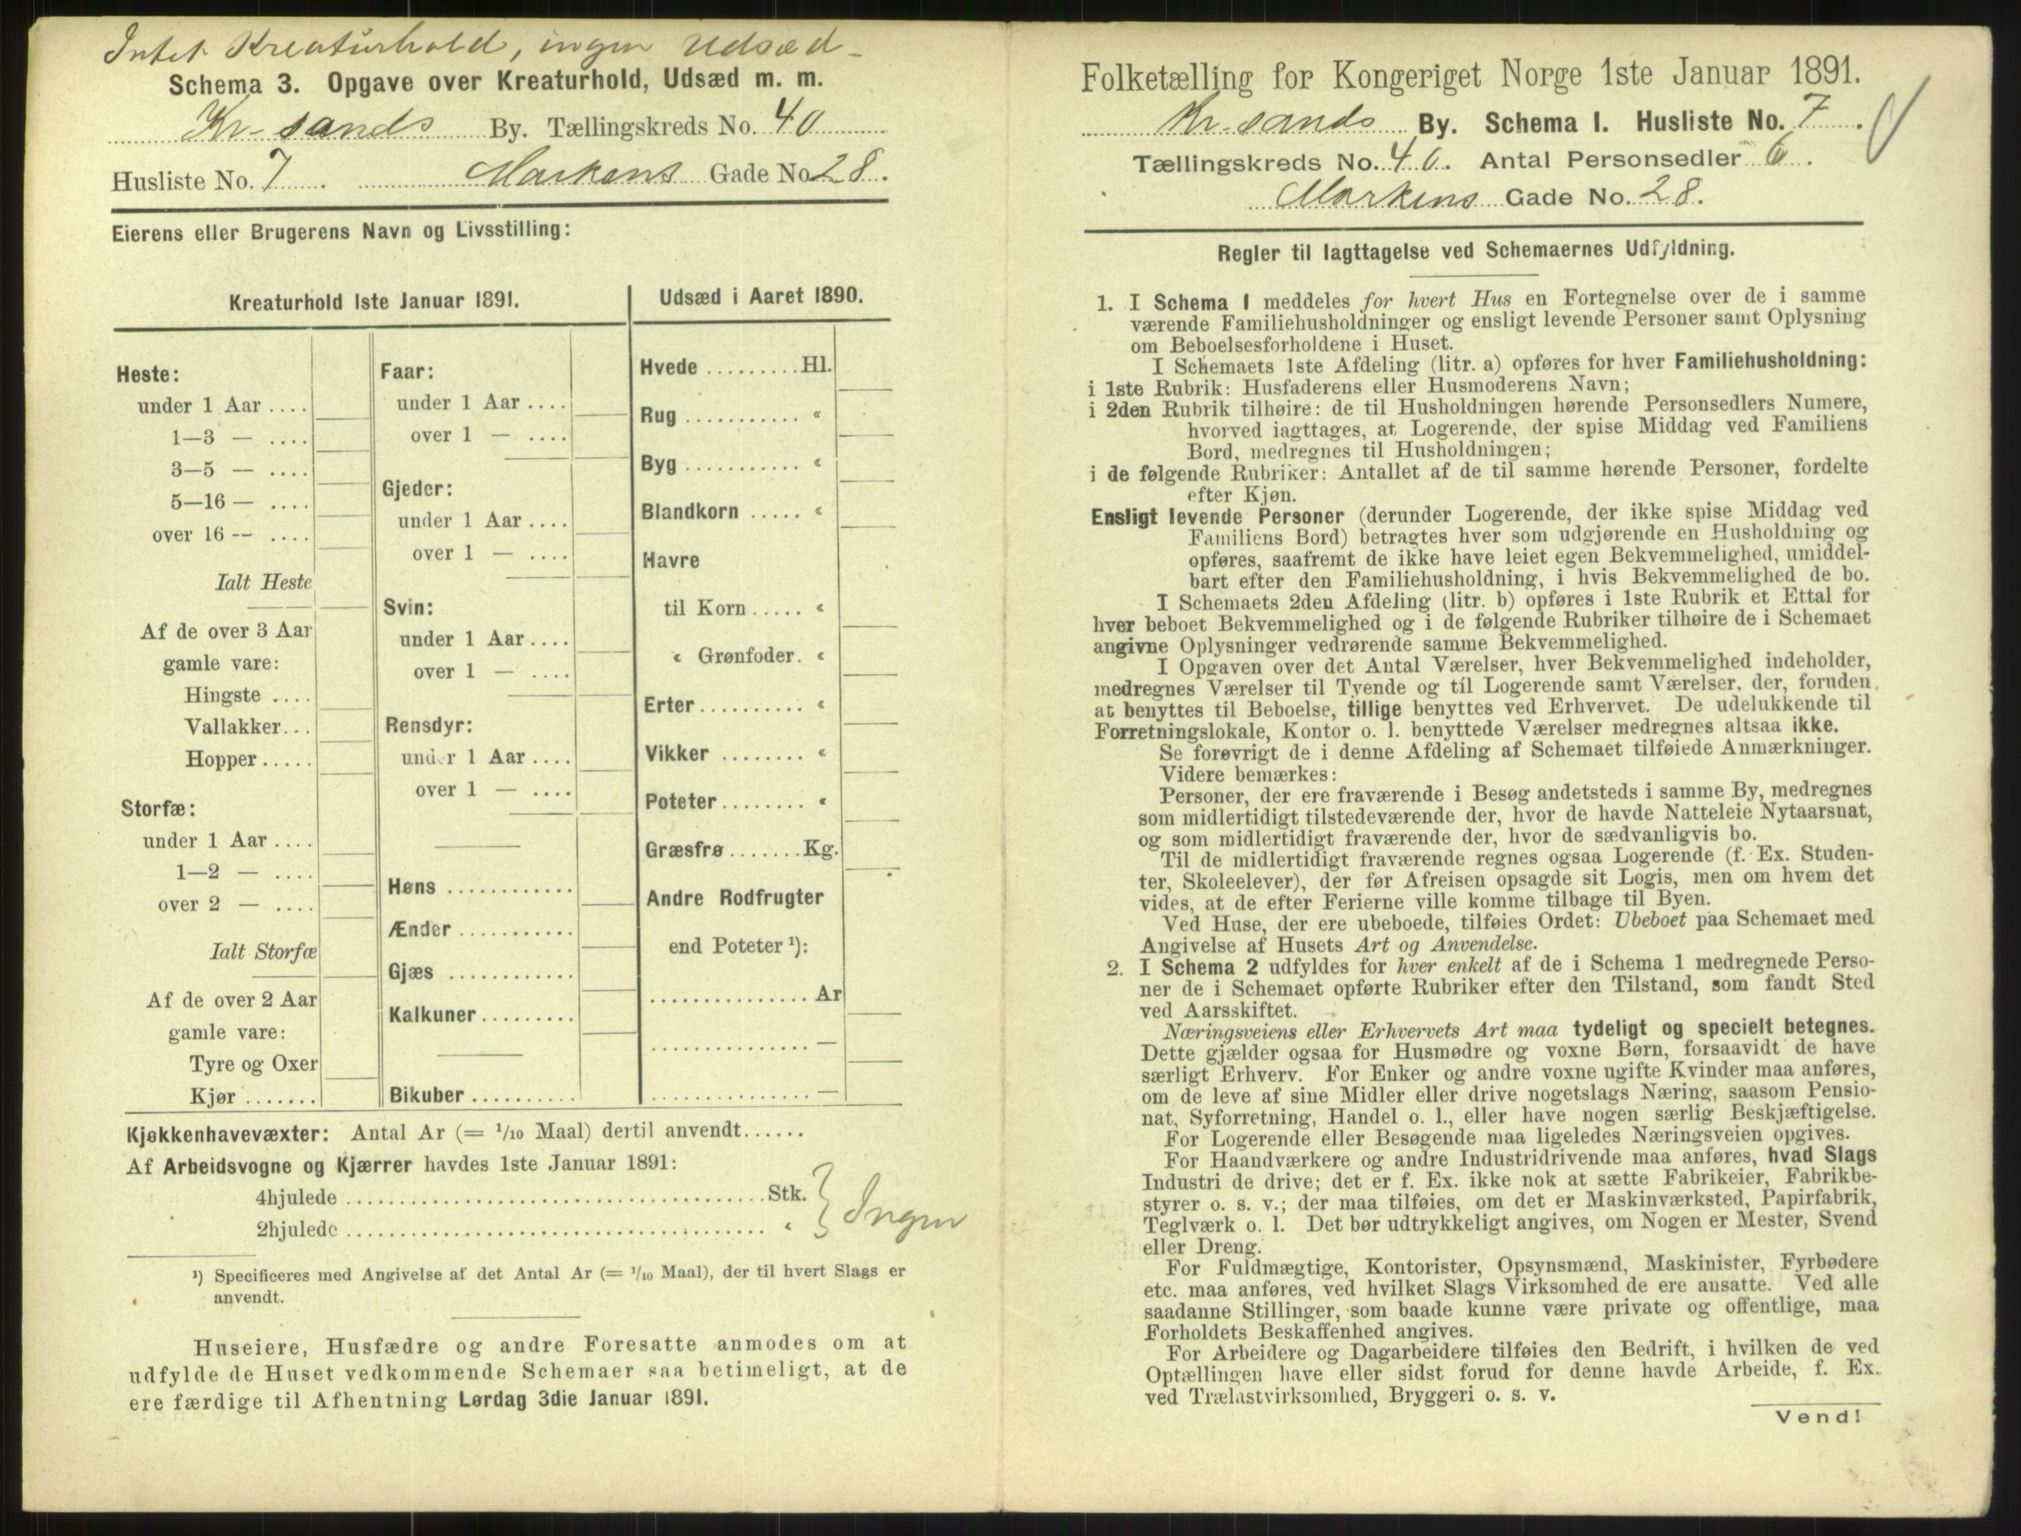 Intet Kreaturhold, ingen Udsæd -
Schema 3. Opgave over Kreaturhold, Udsæd m. m.
Kr-sands By. Tællingskreds No. 40
Husliste No. 7 Markens Gade No. 28.
Eierens eller Brugerens Navn og Livsstilling:
Kreaturhold 1ste Januar 1891.
Heste:
under 1 Aar ....
1—3 — ....
3—5 — ....
5—16 — ....
over 16 — ....
Ialt Heste
Af de over 3 Aar
gamle vare:
Hingste ....
Vallakker...
Hopper.....
Storfæ:
under 1 Aar ....
1—2 — ....
over 2 — ....
Ialt Storfæ
Af de over 2 Aar
gamle vare:
Tyre og Oxer
Kjør .......
Faar:
under 1 Aar ....
over 1 — ....
Gjeder:
under 1 Aar ....
over 1 — ....
Svin:
under 1 Aar ....
over 1 — ....
Rensdyr:
under 1 Aar ....
over 1 — ....
Høns ............
Ænder ...........
Gjæs ............
Kalkuner.........
Bikuber ..........
Udsæd i Aaret 1890.
Hvede .........Hl.
Rug ........... «
Byg ........... «
Blandkorn ..... «
Havre
til Korn ..... «
« Grønfoder. «
Erter.......... «
Vikker ........ «
Poteter........ «
Græsfrø .......Kg.
Andre Rodfrugter
end Poteter ¹):
...............Ar
............... —
............... —
Kjøkkenhavevæxter: Antal Ar (= 1/10 Maal) dertil anvendt......
Af Arbeidsvogne og Kjærrer havdes 1ste Januar 1891:
4hjulede ........................................Stk.
2hjulede ........................................ «
} Ingen
¹) Specificeres med Angivelse af det Antal Ar (= 1/10 Maal), der til hvert Slags er
anvendt.
Huseiere, Husfædre og andre Foresatte anmodes om at
udfylde de Huset vedkommende Schemaer saa betimeligt, at de
ere færdige til Afhentning Lørdag 3die Januar 1891.
Folketælling for Kongeriget Norge 1ste Januar 1891.
Kr-sands By. Schema I. Husliste No. 7.
Tællingskreds No. 40. Antal Personsedler 6.
Markens Gade No. 28.
Regler til Iagttagelse ved Schemaernes Udfyldning.
1. I Schema 1 meddeles for hvert Hus en Fortegnelse over de i samme
værende Familiehusholdninger og ensligt levende Personer samt Oplysning
om Beboelsesforholdene i Huset.
I Schemaets 1ste Afdeling (litr. a) opføres for hver Familiehusholdning:
i 1ste Rubrik: Husfaderens eller Husmoderens Navn;
i 2den Rubrik tilhøire: de til Husholdningen hørende Personsedlers Numere,
hvorved iagttages, at Logerende, der spise Middag ved Familiens
Bord, medregnes til Husholdningen;
i de følgende Rubriker: Antallet af de til samme hørende Personer, fordelte
efter Kjøn.
Ensligt levende Personer (derunder Logerende, der ikke spise Middag ved
Familiens Bord) betragtes hver som udgjørende en Husholdning og
opføres, saafremt de ikke have leiet egen Bekvemmelighed, umiddel-
bart efter den Familiehusholdning, i hvis Bekvemmelighed de bo.
I Schemaets 2den Afdeling (litr. b) opføres i 1ste Rubrik et Ettal for
hver beboet Bekvemmelighed og i de følgende Rubriker tilhøire de i Schemaet
angivne Oplysninger vedrørende samme Bekvemmelighed.
I Opgaven over det Antal Værelser, hver Bekvemmelighed indeholder,
medregnes Værelser til Tyende og til Logerende samt Værelser, der, foruden
at benyttes til Beboelse, tillige benyttes ved Erhvervet. De udelukkende til
Forretningslokale, Kontor o. l. benyttede Værelser medregnes altsaa ikke.
Se forøvrigt de i denne Afdeling af Schemaet tilføiede Anmærkninger.
Videre bemærkes:
Personer, der ere fraværende i Besøg andetsteds i samme By, medregnes
som midlertidigt tilstedeværende der, hvor de havde Natteleie Nytaarsnat,
og som midlertidigt fraværende der, hvor de sædvanligvis bo.
Til de midlertidigt fraværende regnes ogsaa Logerende (f. Ex. Studen-
ter, Skoleelever), der før Afreisen opsagde sit Logis, men om hvem det
vides, at de efter Ferierne ville komme tilbage til Byen.
Ved Huse, der ere ubeboede, tilføies Ordet: Ubeboet paa Schemaet med
Angivelse af Husets Art og Anvendelse.
2. I Schema 2 udfyldes for hver enkelt af de i Schema 1 medregnede Perso-
ner de i Schemaet opførte Rubriker efter den Tilstand, som fandt Sted
ved Aarsskiftet.
Næringsveiens eller Erhvervets Art maa tydeligt og specielt betegnes.
Dette gjælder ogsaa for Husmødre og voxne Børn, forsaavidt de have
særligt Erhverv. For Enker og andre voxne ugifte Kvinder maa anføres,
om de leve af sine Midler eller drive nogetslags Næring, saasom Pensio-
nat, Syforretning, Handel o. l., eller have nogen særlig Beskjæftigelse.
For Logerende eller Besøgende maa ligeledes Næringsveien opgives.
For Haandværkere og andre Industridrivende maa anføres, hvad Slags
Industri de drive; det er f. Ex. ikke nok at sætte Fabrikeier, Fabrikbe-
styrer o. s. v.; der maa tilføies, om det er Maskinværksted, Papirfabrik,
Teglværk o. l. Det bør udtrykkeligt angives, om Nogen er Mester, Svend
eller Dreng.
For Fuldmægtige, Kontorister, Opsynsmænd, Maskinister, Fyrbødere
etc. maa anføres, ved hvilket Slags Virksomhed de ere ansatte. Ved alle
saadanne Stillinger, som baade kunne være private og offentlige, maa
Forholdets Beskaffenhed angives.
For Arbeidere og Dagarbeidere tilføies den Bedrift, i hvilken de ved
Optællingen have eller sidst forud for denne havde Arbeide, f. Ex.
ved Trælastvirksomhed, Bryggeri o. s. v.
Vend!